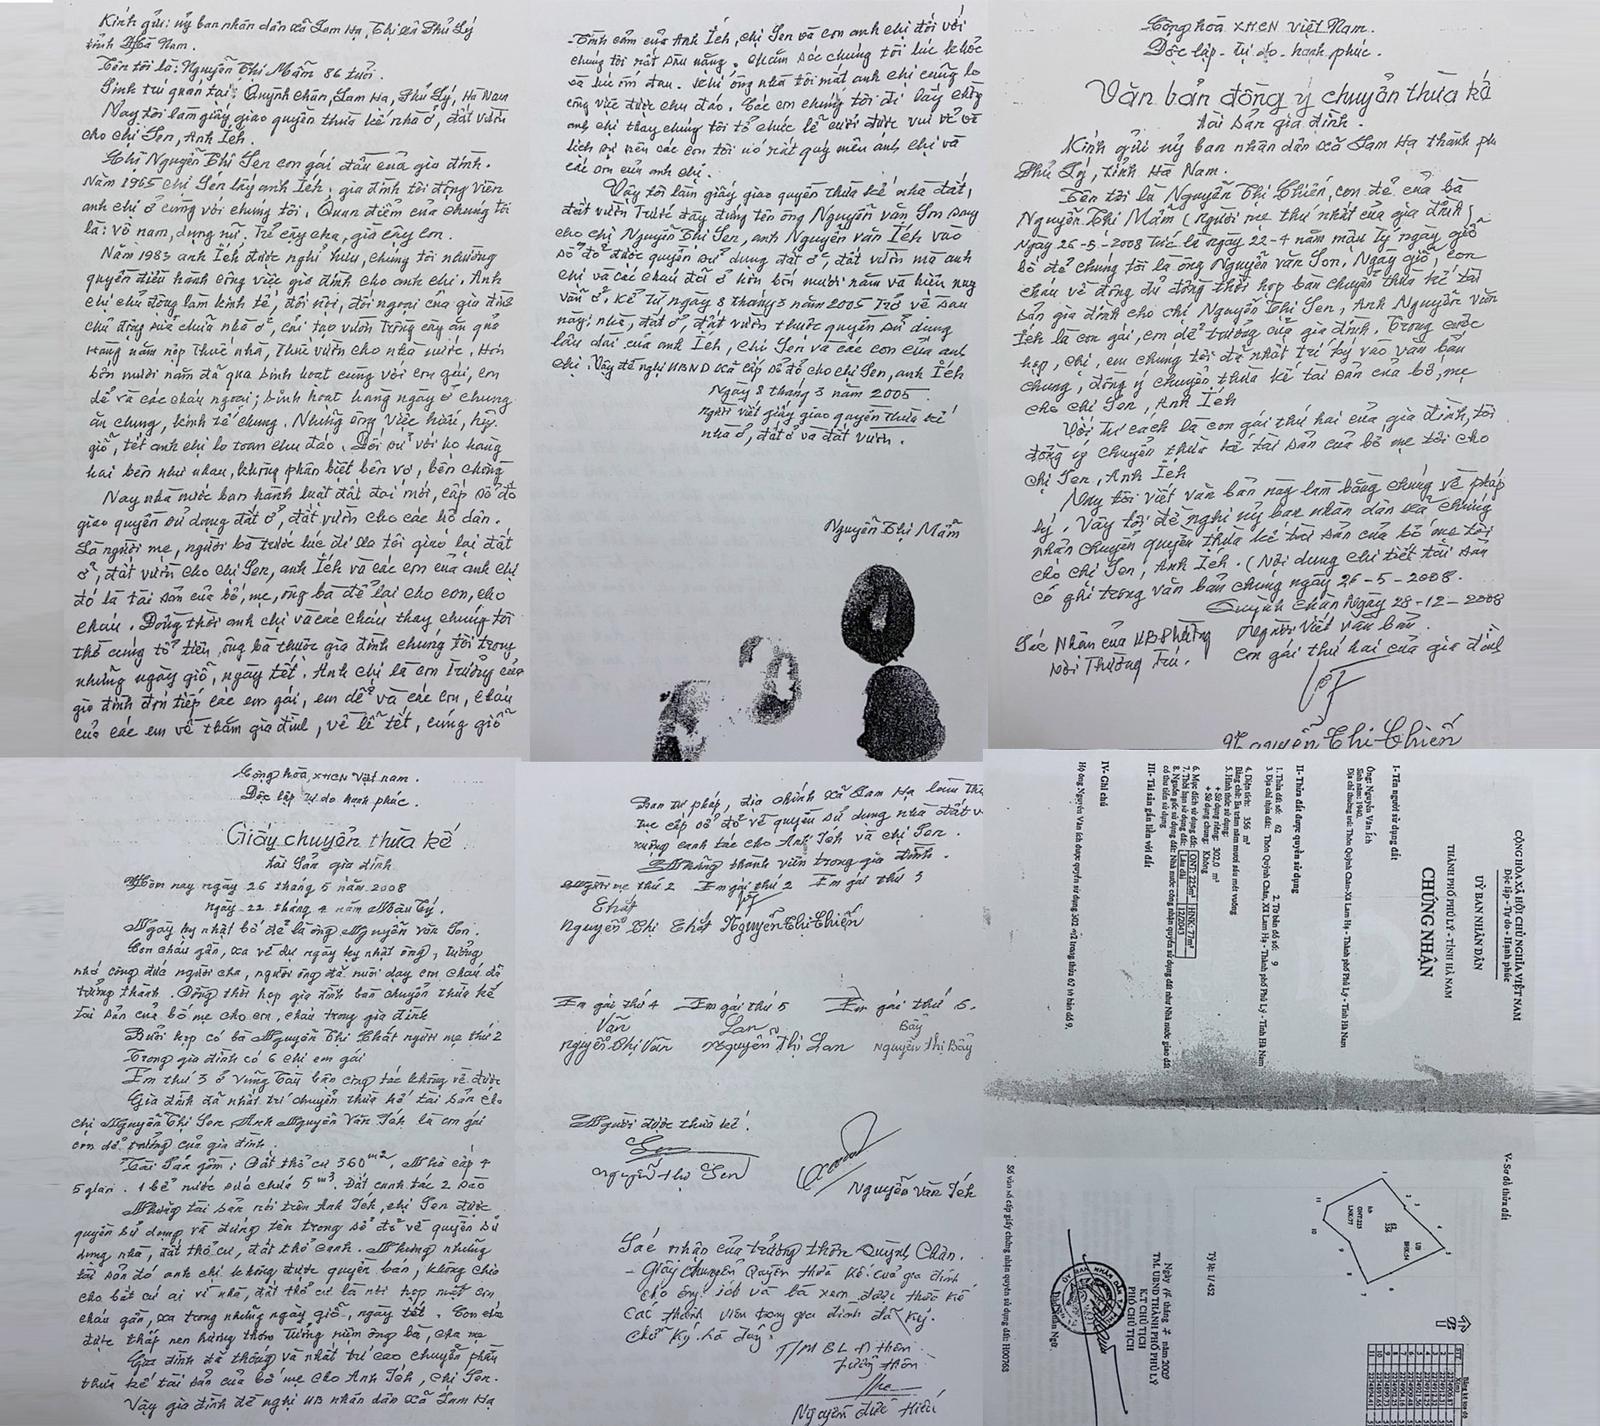 Kính gửi: Ủy ban nhân dân xã Lam Hạ, Thị xã Phủ Lý
tỉnh Hà Nam.
Tên tôi là: Nguyễn Thị Mầm 86 tuổi.
Sinh trú quán tại: Quỳnh chân, Lam Hạ, Phủ Lý, Hà Nam
Nay tôi làm giấy giao quyền thừa kế nhà ở, đất vườn
cho chị Sen, Anh Ích.
Chị Nguyễn Thị Sen con gái đầu của gia đình.
Năm 1965 chị Sen lấy anh Ích, gia đình tôi động viên
anh chị ở cùng với chúng tôi. Quan điểm của chúng tôi
là: vô nam, dụng nữ. Trẻ cậy cha, già cậy con.
Năm 1983 anh Ích được nghỉ hưu, chúng tôi nhường
quyền điều hành công việc gia đình cho anh chị. Anh
chị chủ động làm kinh tế, đối nội, đối ngoại của gia đình
chủ động sửa chữa nhà ở, cải tạo vườn trồng cây ăn quả
Hàng năm nộp thuế nhà, thuế vườn cho nhà nước. Hơn
bốn mươi năm đã qua sinh hoạt cùng với em gái, em
dể và các cháu ngoại; sinh hoạt hàng ngày ở chung
ăn chung, kinh tế chung. Những công việc hiếu, hỷ.
giỗ, tết anh chị lo toan chu đáo. Đối sử với họ hàng
hai bên như nhau, không phân biệt bên vợ, bên chồng
Nay nhà nước ban hành luật đất đai mới, cấp sổ đỏ
giao quyền sử dụng đất ở, đất vườn cho các hộ dân.
Là người mẹ, người bà trước lúc đi xa tôi giao lại đất
ở, đất vườn cho chị Sen, anh Ích và các con của anh chị
đó là tài sản của bố, mẹ, ông bà để lại cho con, cho
cháu. Đồng thời anh chị và các cháu thay chúng tôi
thờ cúng tổ tiên, ông bà thuộc gia đình chúng tôi trong
những ngày giỗ, ngày tết. Anh chị là con trưởng của
gia đình đón tiếp các em gái, em dể và các con, cháu
của các em về thăm gia đình, về lễ tết, cúng giỗ
Tình cảm của Anh Ích, chị Sen và con anh chị đối với
chúng tôi rất sâu nặng. Chăm sóc chúng tôi lúc khỏe
và lúc ốm đau. Khi ông nhà tôi mất anh chị cũng lo
công việc được chu đáo. Các em chúng tôi đi lấy chồng
anh chị thay chúng tôi tổ chức lễ cưới được vui vẻ và
lịch sự nên các con tôi nó rất quý mến anh chị và
các con của anh chị.
Vậy tôi làm giấy giao quyền thừa kế nhà đất,
đất vườn trước đây đứng tên ông Nguyễn văn Sơn sang
cho chị Nguyễn Thị Sen, anh Nguyễn văn Ích vào
sổ đỏ được quyền sử dụng đất ở, đất vườn mà anh
chị và các cháu đã ở hơn bốn mươi năm và hiện nay
vẫn ở. Kể từ ngày 8 tháng 3 năm 2005 trở về sau
này; nhà, đất ở, đất vườn thuộc quyền sử dụng
lâu dài của anh Ích, chị Sen và các con của anh
chị. Vậy đề nghị UBND xã cấp sổ đỏ cho chị Sen, anh Ích
Ngày 8 tháng 3 năm 2005.
người viết giấy giao quyền thừa kế
nhà ở, đất ở và đất vườn.
Nguyễn Thị Mầm
Cộng hòa XHCN Việt Nam.
Độc lập - tự do - hạnh phúc.
Văn bản đồng ý chuyển thừa kế
tài sản gia đình.
Kính gửi ủy ban nhân dân xã Lam Hạ thành ph
Phủ Lý, tỉnh Hà Nam.
Tên tôi là Nguyễn Thị Chiến, con đẻ của bà
Nguyễn Thị Mầm (người mẹ thứ nhất của gia đình)
Ngày 26-5-2008 tức là ngày 22-4 năm mậu Tý ngày giỗ
bố đẻ chúng tôi là ông Nguyễn văn Sơn, Ngày giỗ, con
cháu về đông đủ đồng thời họp bàn chuyển thừa kế tài
sản gia đình cho chị Nguyễn Thị Sen, Anh Nguyễn văn
Ích là con gái, em dể trưởng của gia đình. Trong cuộc
họp, chị, em chúng tôi đã nhất trí ký vào văn bản
chung, đồng ý chuyển thừa kế tài sản của bố, mẹ
cho chị Sen, Anh Ích
Với tư cách là con gái thứ hai của gia đình, tôi
đồng ý chuyển thừa kế tài sản của bố mẹ tôi cho
chị Sen, Anh Ích
Nay tôi viết văn bản này làm bằng chứng về pháp
lý. Vậy tôi đề nghị ủy ban nhân dân xã chứng
nhận chuyển quyền thừa kế tài sản của bố mẹ tôi
cho chị Sen, Anh Ích. (Nội dung chi tiết tài sản
có ghi trong văn bản chung ngày 26-5-2008.
Quỳnh Chân Ngày 28-12-2008
Xác Nhận của UB Phường
Nơi Thường Trú.
Người viết văn bản
Con gái thứ hai của gia đình
Nguyễn Thị Chiến
Cộng hòa XHCN Việt nam.
Độc lập tự do hạnh phúc.
Giấy chuyển thừa kế
tài sản gia đình.
Hôm nay ngày 26 tháng 5 năm 2008
ngày 22 tháng 4 năm Mậu Tý.
Ngày kỵ nhật bố đẻ là ông Nguyễn văn Sơn.
Con cháu gần, xa về dự ngày kỵ nhật ông, tưởng
nhớ công đức người cha, người ông đã nuôi dạy con cháu đã
trưởng thành. Đồng thời họp gia đình bàn chuyển thừa kế
tài sản của bố mẹ cho con, cháu trong gia đình
Buổi họp có bà Nguyễn Thị Chất người mẹ thứ 2
Trong gia đình có 6 chị em gái
Em thứ 3 ở Vũng Tàu bận công tác không về được
Gia đình đã nhất trí chuyển thừa kế tài sản cho
chị Nguyễn Thị Sen Anh Nguyễn Văn Ích là con gái
con dể trưởng của gia đình.
Tài sản gồm: Đất thổ cư 360m², Nhà cấp 4
5 gian. 1 bể nước sức chứa 5m³. Đất canh tác 2 sào
Những tài sản nói trên Anh Ích, chị Sen được
quyền sử dụng và đứng tên trong sổ đỏ về quyền sử
dụng nhà, đất thổ cư, đất thổ canh. Nhưng những
tài sản đó anh chị không được quyền bán, không cho
cho bất cứ ai vì nhà, đất thổ cư là nơi họp mặt con
cháu gần, xa trong những ngày giỗ, ngày tết. Con cháu
được thắp nén hương thơm tưởng niệm ông bà, cha mẹ
Gia đình đã thống và nhất trí cao chuyển phần
thừa kế tài sản của bố mẹ cho Anh Ích, chị Sen.
Vậy gia đình đề nghị UB nhân dân xã Lam Hạ
Ban tư pháp, địa chính xã Lam Hạ làm thủ
tục cấp sổ đỏ về quyền sử dụng nhà đất
ruộng canh tác cho Anh Ích và chị Sen.
Những thành viên trong gia đình.
Người mẹ thứ 2 Em gái thứ 2 Em gái thứ 3
Chất
Nguyễn Thị Chất Nguyễn Thị Chiến
Em gái thứ 4 Em gái thứ 5 Em gái thứ 6.
Vân Lan Bẩy
Nguyễn Thị Vân Nguyễn Thị Lan Nguyễn Thị Bẩy
Người được thừa kế.
Sen
Nguyễn Thị Sen Nguyễn Văn Ích
Xác nhận của trưởng thôn Quỳnh Chân.
- Giấy chuyển quyền thừa kế của gia đình
cho ông: ích và bà xen được thừa kế
các thành viên trong gia đình đã ký.
chữ ký là đúng.
T/M BL Đ thôn
trưởng thôn
Nguyễn đức Hiếu
CỘNG HÒA XÃ HỘI CHỦ NGHĨA VIỆT NAM
Độc lập - Tự do - Hạnh phúc
UỶ BAN NHÂN DÂN
THÀNH PHỐ PHỦ LÝ - TỈNH HÀ NAM
CHỨNG NHẬN
I- Tên người sử dụng đất
Ông: Nguyễn Văn Ích
Sinh năm: 1940.
Địa chỉ thường trú: Thôn Quỳnh Chân - Xã Lam Hạ - Thành phố Phủ Lý - Tỉnh Hà Nam
II- Thửa đất được quyền sử dụng
1. Thửa đất số: 62 2. Tờ bản đồ số: 9
3. Địa chỉ thửa đất: Thôn Quỳnh Chân, Xã Lam Hạ - Thành phố Phủ Lý - Tỉnh Hà Nam
4. Diện tích: 356 m²
Bằng chữ: Ba trăm năm mươi sáu mét vuông
5. Hình thức sử dụng:
+ Sử dụng riêng: 302.0 m²
+ Sử dụng chung: Không
6. Mục đích sử dụng đất: ONT: 225m² HNK: 77m²
7. Thời hạn sử dụng đất: Lâu dài 12/2043
8. Nguồn gốc sử dụng đất: Nhà nước công nhận quyền sử dụng đất như Nhà nước giao đất
có thu tiền sử dụng đất
III- Tài sản gắn liền với đất
IV- Ghi chú
Hộ ông Nguyễn Văn Ích được quyền sử dụng 302 m2 trong thửa 62 tờ bản đồ 9.
V- Sơ đồ thửa đất
Tỷ lệ: 1/452
Ngày 17 tháng 7 năm 2009
TM. UBND THÀNH PHỐ PHỦ LÝ
K.T CHỦ TỊCH
PHÓ CHỦ TỊCH
Số vào sổ cấp giấy chứng nhận quyền sử dụng đất: H00763